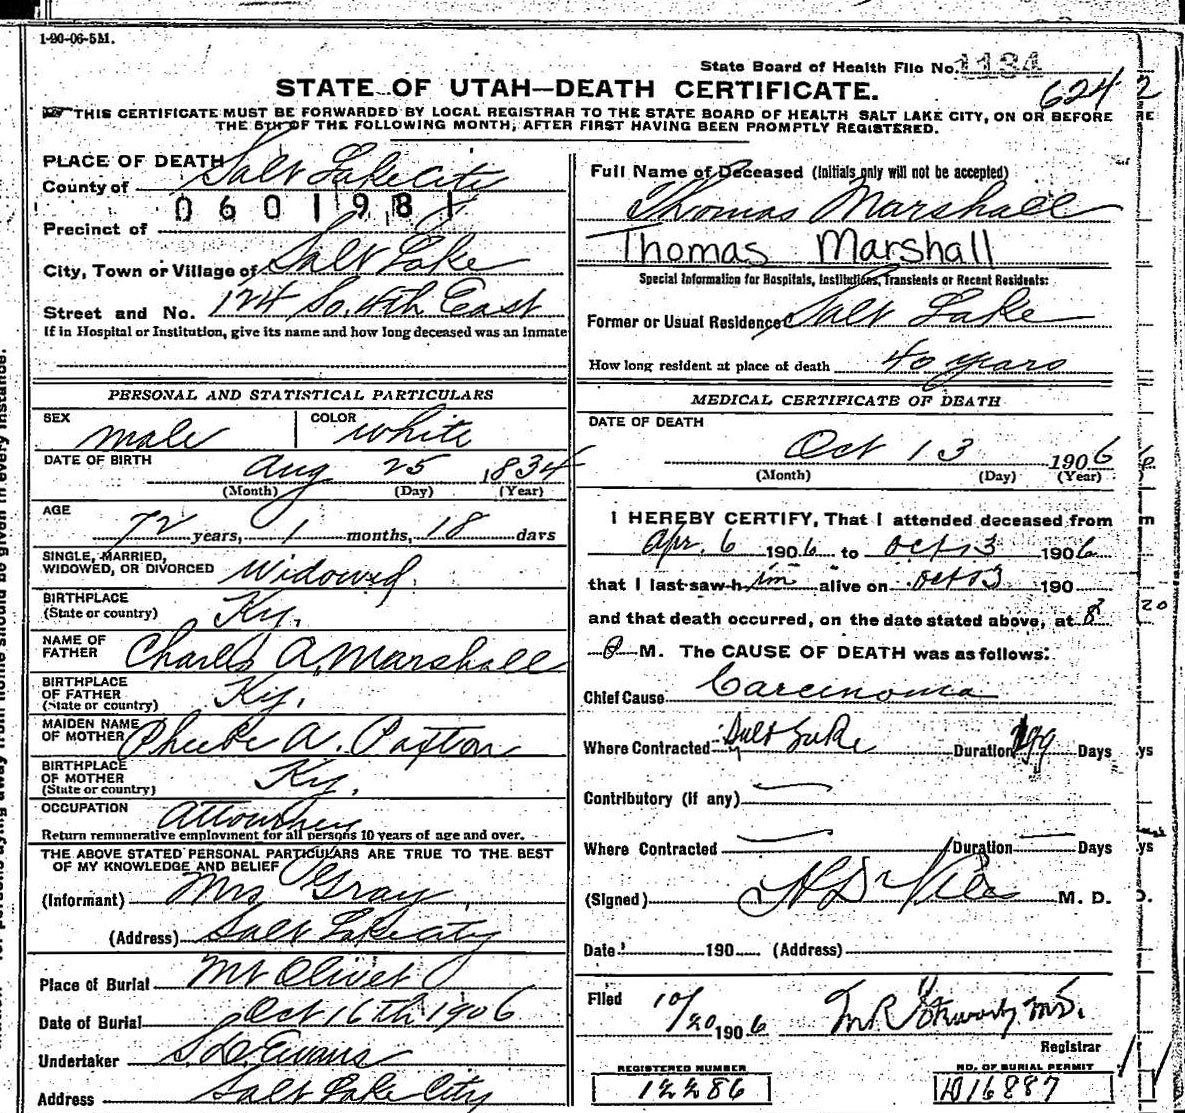 1-20-06-5M.
State Board of Health File No. 1134
624
STATE OF UTAH—DEATH CERTIFICATE.
THIS CERTIFICATE MUST BE FORWARDED BY LOCAL REGISTRAR TO THE STATE BOARD OF HEALTH SALT LAKE CITY, ON OR BEFORE
THE 5TH OF THE FOLLOWING MONTH, AFTER FIRST HAVING BEEN PROMPTLY REGISTERED.
PLACE OF DEATH
County of Salt Lake City
0601981
Precinct of
City, Town or Village of Salt Lake
Street and No. 124 So. 4th East
If in Hospital or Institution, give its name and how long deceased was an inmate
PERSONAL AND STATISTICAL PARTICULARS
SEX male COLOR white
DATE OF BIRTH Aug 25 1834
(Month) (Day) (Year)
AGE
72 years, 1 months, 18 days
SINGLE, MARRIED,
WIDOWED, OR DIVORCED Widowed
BIRTHPLACE
(State or country) Ky.
NAME OF
FATHER Charles A. Marshall
BIRTHPLACE
OF FATHER
(State or country) Ky.
MAIDEN NAME
OF MOTHER Phoebe A. Paxton
BIRTHPLACE
OF MOTHER
(State or country) Ky.
OCCUPATION Attorney
Return remunerative employment for all persons 10 years of age and over.
THE ABOVE STATED PERSONAL PARTICULARS ARE TRUE TO THE BEST
OF MY KNOWLEDGE AND BELIEF
(Informant) Mrs Gray
(Address) Salt Lake City
Place of Burial Mt Olivet
Date of Burial Oct 16th 1906
Undertaker S. D. Evans
Address Salt Lake City
Full Name of Deceased (Initials only will not be accepted)
Thomas Marshall
Thomas Marshall
Special Information for Hospitals, Institutions, Transients or Recent Residents:
Former or Usual Residence Salt Lake
How long resident at place of death 40 years
MEDICAL CERTIFICATE OF DEATH
DATE OF DEATH
Oct 13 1906
(Month) (Day) (Year)
I HEREBY CERTIFY, That I attended deceased from
Apr. 6 1906 to Oct 13 1906
that I last saw him alive on Oct 13 190
and that death occurred, on the date stated above, at 8
M. The CAUSE OF DEATH was as follows:
Chief Cause Carcinoma
Where Contracted Salt Lake Duration Days
Contributory (if any)
Where Contracted Duration Days
(Signed) M. D.
Date 190 (Address)
Filed 10/20 1906
Registrar
REGISTERED NUMBER
12286
NO. OF BURIAL PERMIT
D16887